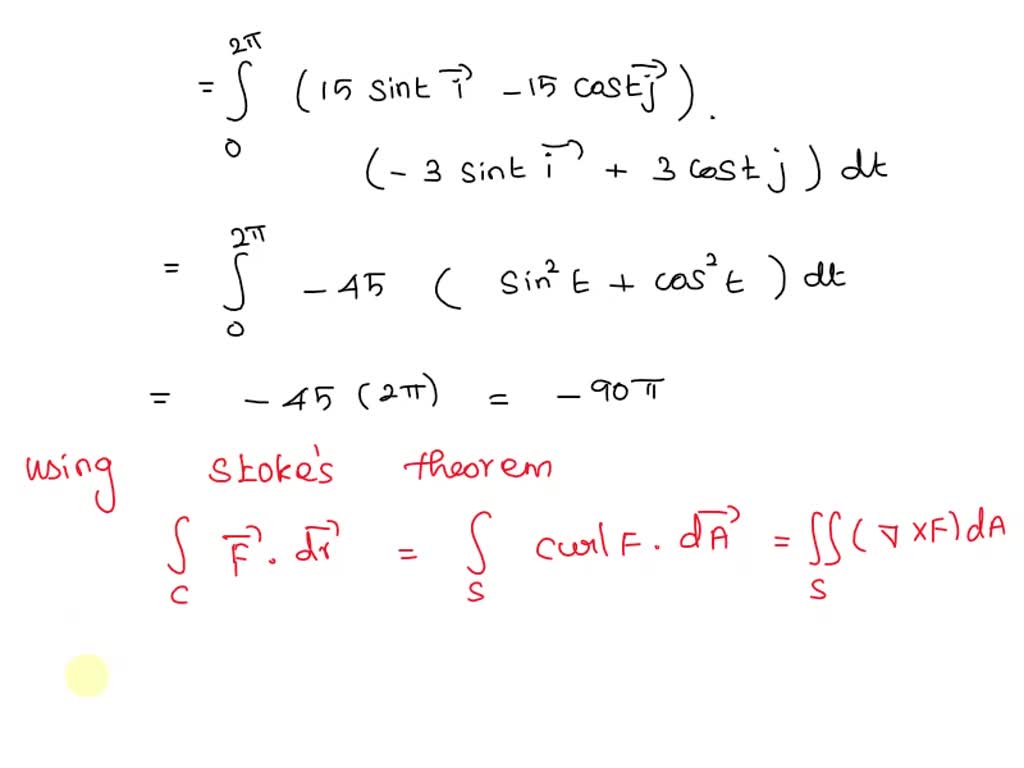 = ∫₀^2π (15 sint i⃗ – 15 cost j⃗) .
(– 3 sint i⃗ + 3 cost j) dt
= ∫₀^2π – 45 ( sin² t + cos² t ) dt
= – 45 (2π) = – 90π
using stoke's theorem
∫_C F⃗ . dr⃗ = ∫_S curl F . dA⃗ = ∬_S (∇ × F) dA